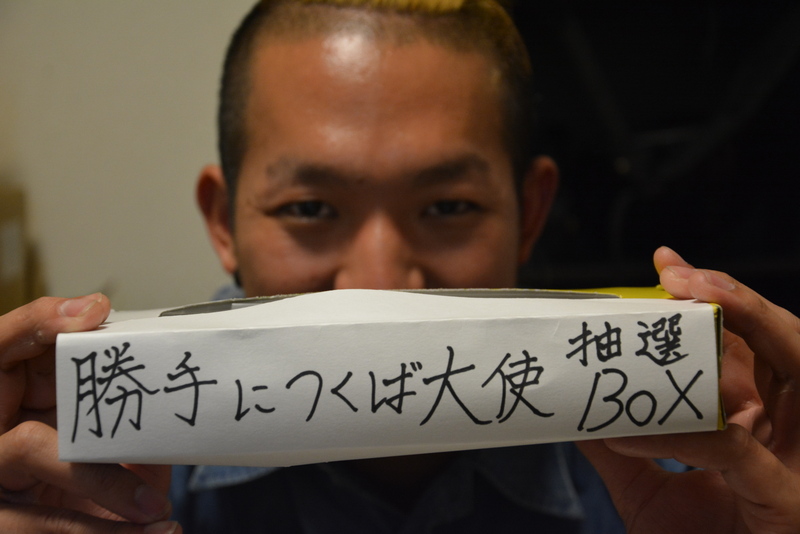 勝手につくば大使
抽選
BOX